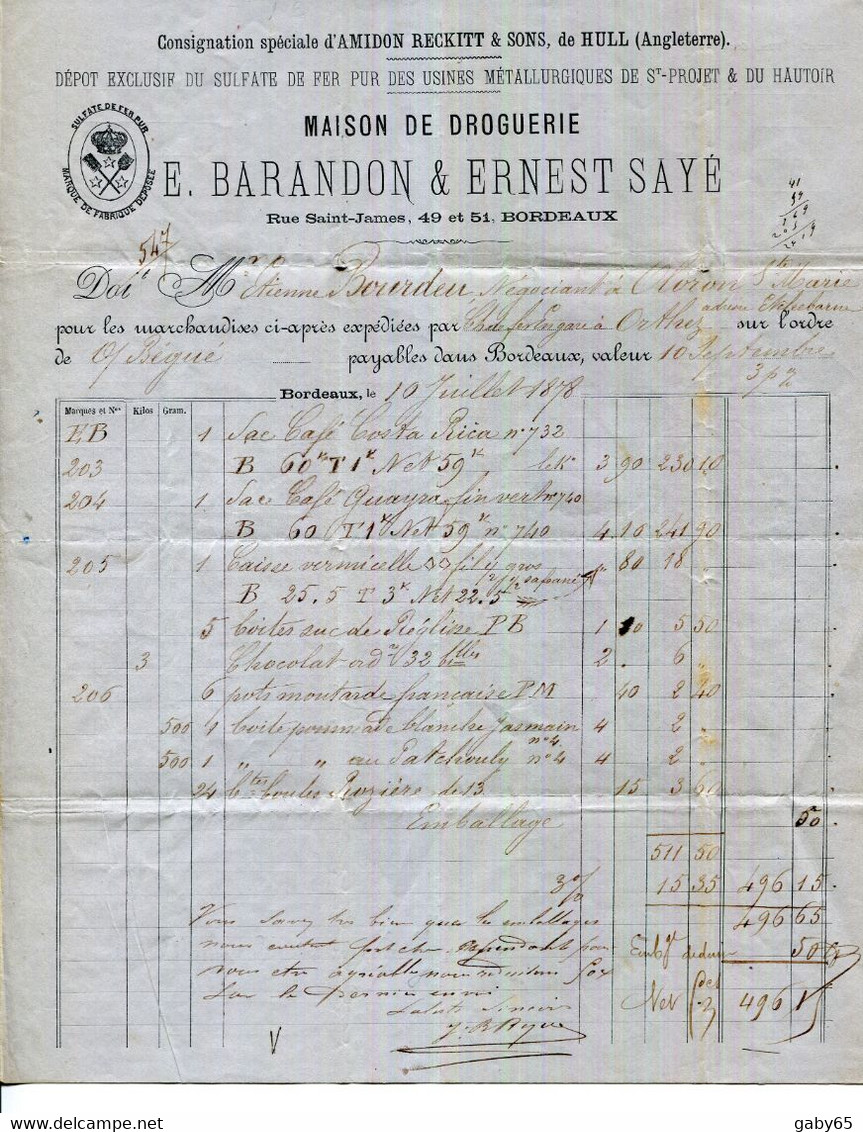 Consignation spéciale d'AMIDON RECKITT & SONS, de HULL (Angleterre).
DÉPOT EXCLUSIF DU SULFATE DE FER PUR DES USINES MÉTALLURGIQUES DE ST-PROJET & DU HAUTOIR
SULFATE DE FER PUR
MARQUE DE FABRIQUE DÉPOSÉE
MAISON DE DROGUERIE
E. BARANDON & ERNEST SAYÉ
Rue Saint-James, 49 et 51, BORDEAUX
547
Doit Mr Etienne Bourdeu Négociant à Oloron Ste Marie
pour les marchandises ci-après expédiées par Ch de fer en gare à Orthez sur l'ordre
de O/ Bégué payables dans Bordeaux, valeur 10 Septembre
Bordeaux, le 10 Juillet 1878
Marques et Nos Kilos Gram.
EB 1 Sac Café Costa Rica n° 732
203 B 60 K T 1 K Net 59 K le K 3 90 230 10
204 1 Sac Café Guayra fin vert n° 740
B 60 T 1 K Net 59 K n° 740 4 10 241 90
205 1 Caisse vermicelle fil gros 80 18 "
B 25.5 T 3 K Net 22.5
5 Boites suc de Réglisse PB 1 10 5 50
3 Chocolat ord 32 2 . 6 "
206 6 pots moutarde française PM 40 2 40
500 1 boite pommade blanche Jasmain n° 4 4 2 "
500 1 " " au Patchouly n° 4 4 2 "
24 Btes boules Rozière de 13 15 3 60
Emballage 50
511 50
3 % 15 35 496 15
496 65
Vous savez très bien que les emballages
nous coutent fort cher cependant pour
vous être agréable nous
Sur le dernier envoi
Emb déduire 50
Net 496 15
gaby65